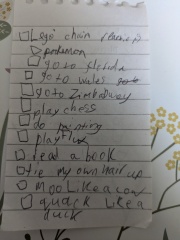 Lego chain
pokemon
go to florida
go to wales
go to Zimbabway
play chess
do painting
play
read a book
tie my own hair up
moo like a cow
quack like a
duck